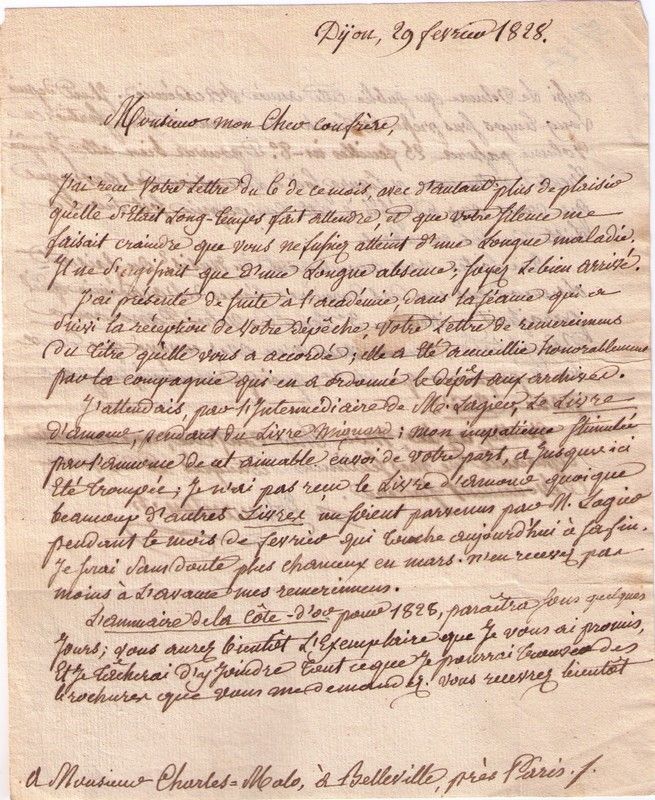 Dijon, 29 fevrier 1828.
Monsieur mon Cher confrère,
J'ai recu Votre Lettre du 6 de ce mois, avec d'autant plus de plaisir
qu'elle s'était Long-temps fait attendre, et que votre silence me
faisait craindre que vous ne fussiez atteint d'une Longue maladie.
Il ne s'agissait que d'une Longue absence; soyez Le bien arrivé.
J'ai présenté de suite à l'académie dans la séance qui a
suivi la réception de votre dépêche, votre Lettre de remercimens
du titre qu'elle vous a accordé; elle a Eté accueillie honorablement
par la compagnie qui en a ordonné le dépôt aux archives.
J'attendais, par l'Intermédiaire de M. Lagier, Le Livre
d'amour, pendant du Livre Mignard; mon impatience stimulée
par l'annonce de cet aimable envoi de votre part, a Jusqu'ici
Eté trompée; Je n'ai pas recu le Livre d'amour quoique
beaucoup d'autres Livres me soient parvenus par M. Lagier
pendant le mois de fevrier qui touche aujourd'hui à sa fin.
Je serai sans doute plus chanceux en mars. n'en recevez pas
moins à L'avance mes remercimens.
L'annuaire de la Côte-d'or pour 1828, paraîtra sous quelques
Jours; vous aurez bientôt L'Exemplaire que Je vous ai promis,
Et Je tâcherai d'y Joindre tout ce que Je pourrai trouver des
brochures que vous me demandez. vous recevrez bientôt
A Monsieur Charles=Malo, à Belleville, près Paris.